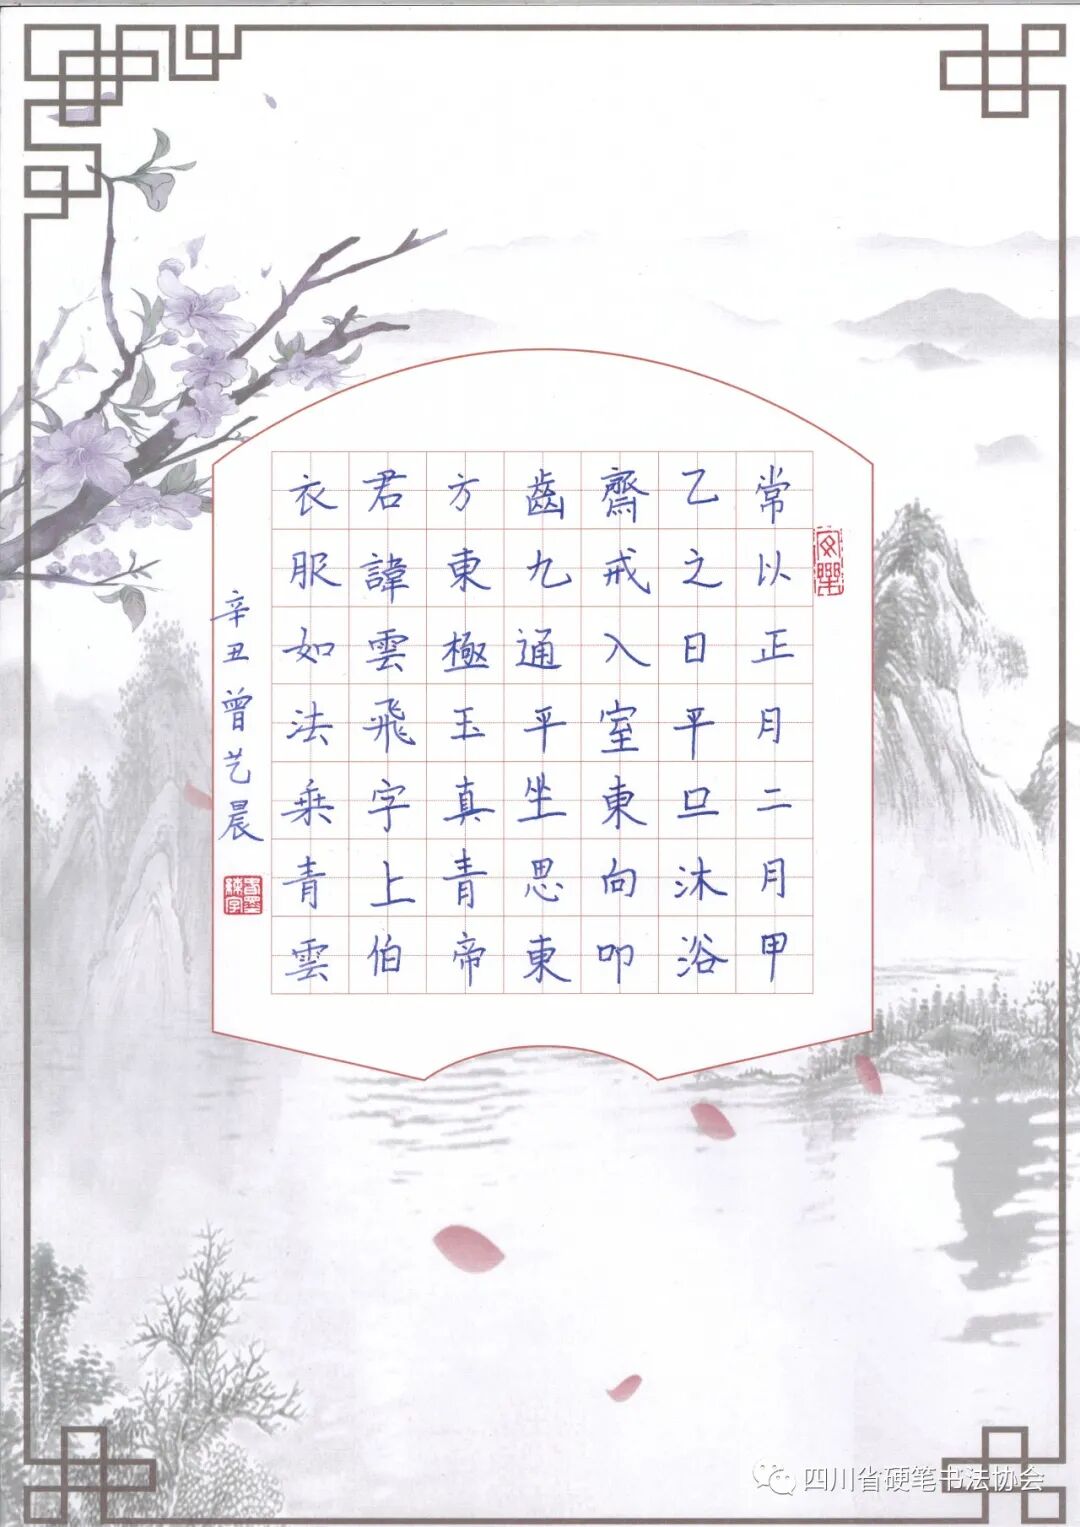 常以正月二月甲
乙之日平旦沐浴
齋戒入室東向叩
齒九通平坐思東
方東極玉真青帝
君諱雲飛字上伯
衣服如法乘青雲
辛丑曾艺晨
四川省硬笔书法协会